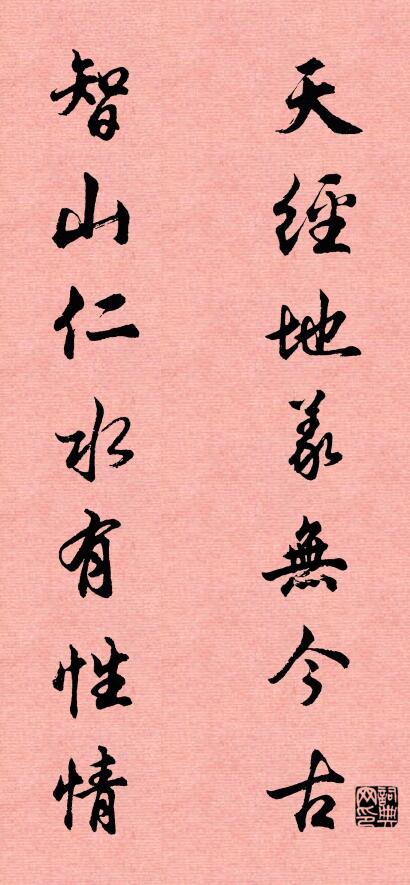 天經地義無今古
智山仁水有性情
詞典网印